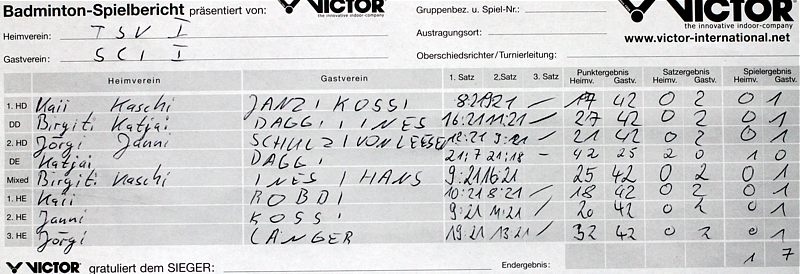 Badminton-Spielbericht präsentiert von: VICTOR Gruppenbez. u. Spiel-Nr.: VICTOR
the innovative indoor-company the innovative indoor-company
Heimverein: TSV I Austragungsort: www.victor-international.net
Gastverein: SCI I Oberschiedsrichter/Turnierleitung:
Heimverein Gastverein 1. Satz 2. Satz 3. Satz Punktergebnis Satzergebnis Spielergebnis
Heimv. Gastv. Heimv. Gastv. Heimv. Gastv.
1. HD Kaii Kaschi JANZI KOSSI 17 42 0 2 0 1
DD Birgiti Katjai DAGGI INES 16:21 11:21 – 27 42 0 2 0 1
2. HD Jörgi Janni SCHULZI VON LEESE 12:21 9:21 – 21 42 0 2 0 1
DE Katjai DAGGI 21:7 21:18 – 42 25 2 0 1 0
Mixed Birgiti Kaschi INES I HANS 9:21 16:21 25 42 0 2 0 1
1. HE Kaii ROBDI 10:21 8:21 / 18 42 0 2 0 1
2. HE Janni KOSSI 9:21 11:21 / 20 42 0 2 0 1
3. HE Jörgi LANGER 19:21 13:21 / 32 42 0 2 0 1
VICTOR gratuliert dem SIEGER: Endergebnis: 1 7